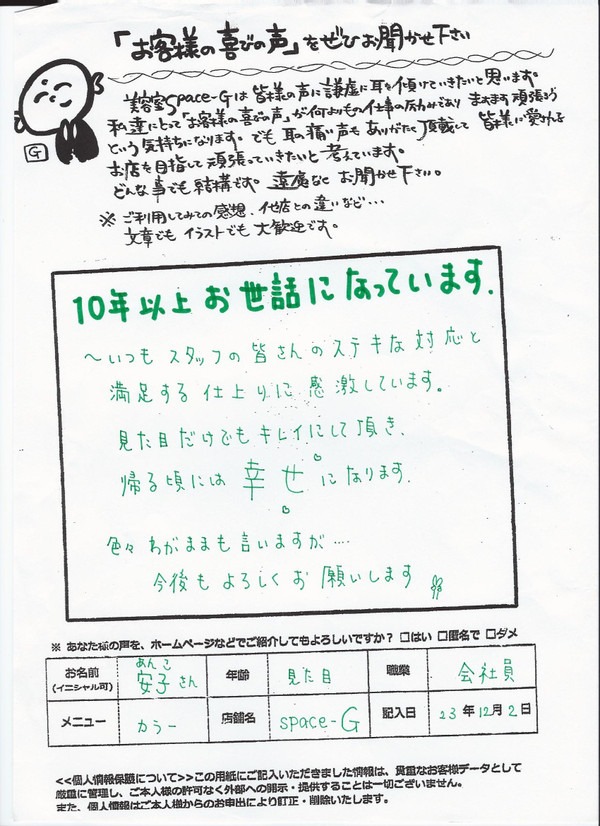 「お客様の喜びの声」をぜひお聞かせ下さい
美容室Space-Gは皆様の声に謙虚に耳を傾けていきたいと思います。
私達にとって「お客様の喜びの声」が何よりもの仕事の励みであり ますます頑張ろう
という気持ちになります。でも 耳の痛い声も ありがたく 頂戴して 皆様に愛される
お店を目指して 頑張っていきたいと 考えています。
どんな事でも結構です。 遠慮なく お聞かせ下さい。
※ ご利用してみての感想、他店との違いなど…
文章でも イラストでも 大歓迎です。
G
10年以上 お世話になっています.
～いつも スタッフの皆さんのステキな対応と
満足する仕上りに 感激しています。
見た目だけでもキレイにして頂き、
帰る頃には 幸せ になります.
色々 わがままも言いますが‥‥
今後も よろしくお願いします
※ あなた様の声を、ホームページなどでご紹介してもよろしいですか？ □はい □匿名で □ダメ
お名前 (イニシャル可) あんこ 安子さん 年齢 見た目 職業 会社員
メニュー カラー 店舗名 space-G 記入日 23年12月2日
<<個人情報保護について>>この用紙にご記入いただきました情報は、貴重なお客様データとして
厳重に管理し、ご本人様の許可なく外部への開示・提供することは一切ございません。
また、個人情報はご本人様からのお申出により訂正・削除いたします。